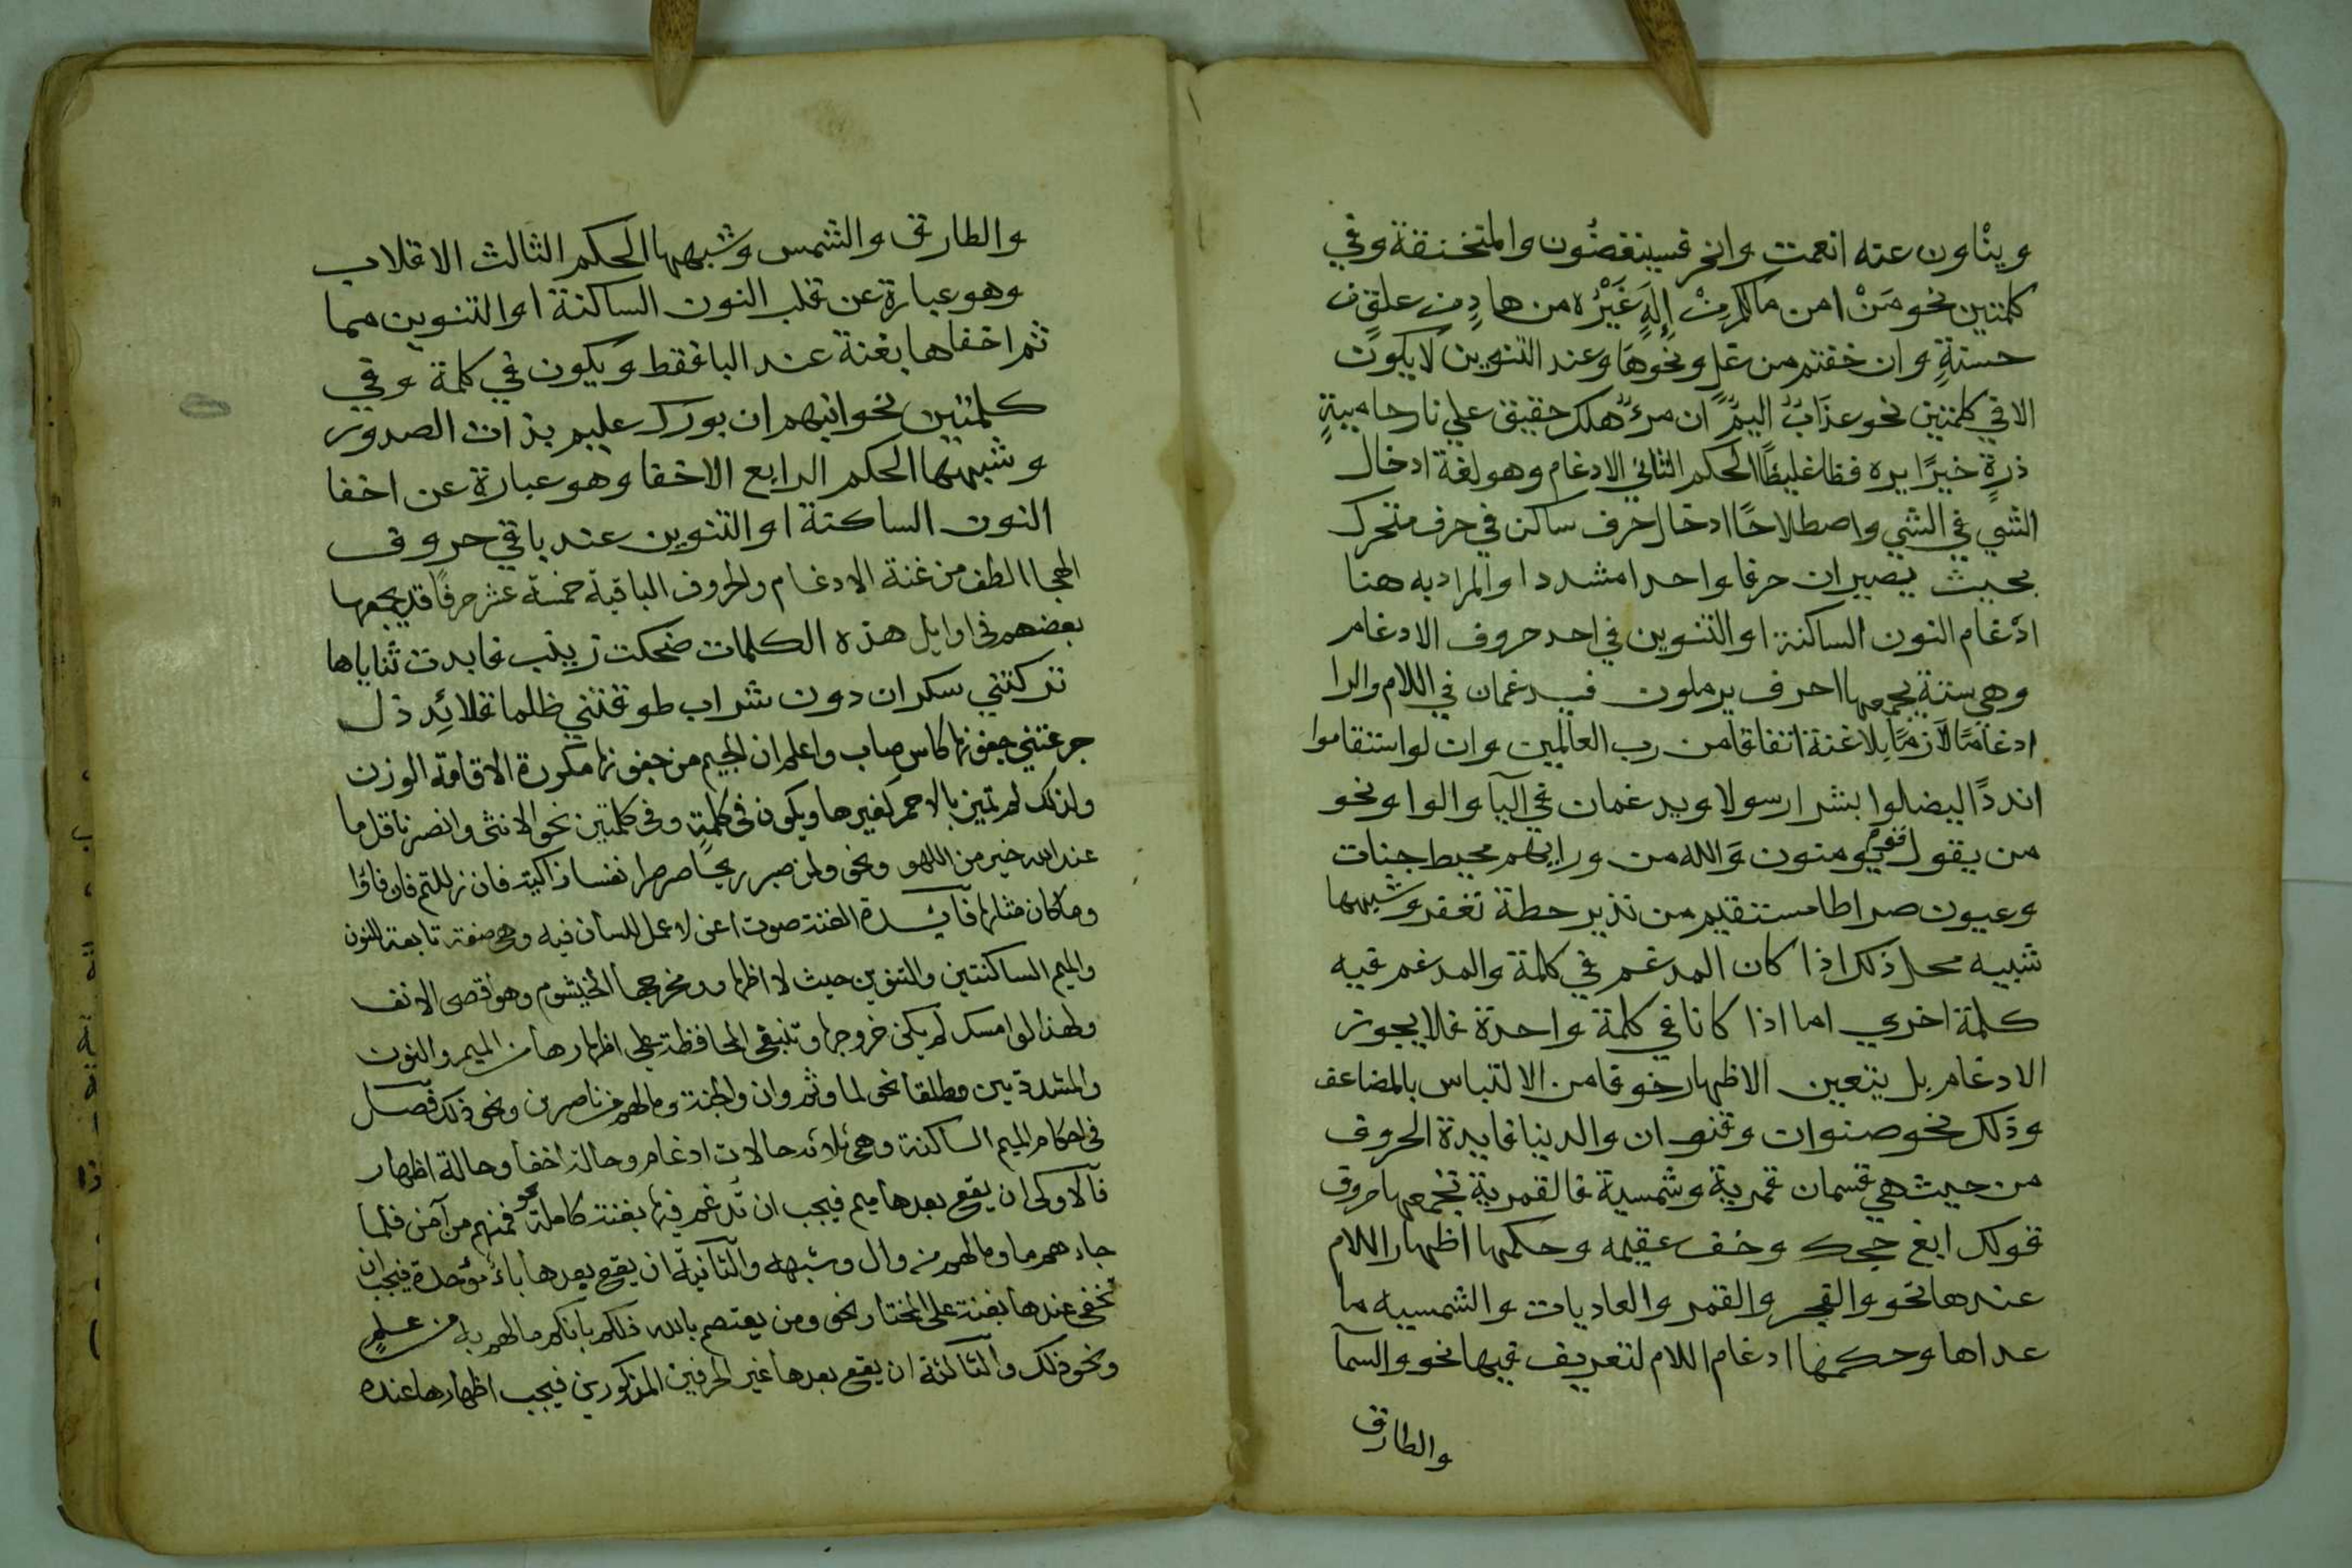 وينْاون عنه انعمت وانحر فسينغضُون والمتخنقة وفي
كلمتين نحو مَنْ امن مالكم مِنْ إِلَهٍ غَيْرُه من هادٍ من علق
حسنةٍ وان خفتم من غل ونحوها وعند التنوين لا يكون
الا في كلمتين نحو عذابٌ اليمٌ ان مرءٌ هلك حقيق علي نار حاميةٍ
ذرةٍ خيرًا يره فظا غليظًا الحكم الثاني الادغام وهو لغة ادخال
الشي في الشي واصطلاحًا ادخال حرف ساكن في حرف متحرك
بحيث يصيران حرفا واحدا مشددا والمراد به هنا
ادغام النون الساكنة او التنوين في احد حروف الادغام
وهي ستة يجمعها احرف يرملون فيدغمان في اللام والرا
ادغامًا لازمًا بلا غنة اتفاقا من رب العالمين وان لو استقاموا
اندادًا ليضلوا بشرا رسولا ويدغمان في اليا والواو ونحو
من يقول لقوم يومنون والله من ورايهم محيط جنات
وعيون صراطا مستقيم من نذير حطة نغفر وشبهها
تنبيه محل ذلك اذا كان المدغم في كلمة والمدغم فيه
كلمة اخري اما اذا كانا في كلمة واحدة فلا يجوز
الادغام بل يتعين الاظهار خوفا من الالتباس بالمضاعف
وذلك نحو صنوان وقنوان والدنيا فايدة الحروف
من حيث هي قسمان قمرية وشمسية فالقمرية تجمعها حروف
قولك ابغ حجك وخف عقيمه وحكمها اظهار اللام
عندها نحو والفجر والقمر والعاديات والشمسيه ما
عداها وحكمها ادغام اللام لتعريف فيها نحو والسمآ
والطارق
والطارق والشمس وشبهها الحكم الثالث الاقلاب
وهو عبارة عن قلب النون الساكنة او التنوين مما
ثم اخفاها بغنة عند البا فقط ويكون في كلمة وفي
كلمتين نحو انبهم ان بورك عليم بذات الصدور
وشبهها الحكم الرابع الاخفا وهو عبارة عن اخفا
النون الساكنة او التنوين عند باقي حروف
الهجا الطف من غنة الادغام والحروف الباقية خمسة عشر حرفًا قد يجمعها
بعضهم في اوايل هذه الكلمات ضحكت زينب فابدت ثناياها
تركتني سكران دون شراب طوقتني ظلما قلائد ذل
جرعتني جفونها كاس صاب واعلم ان الجيم من جفونها مكررة لاقامة الوزن
ولذلك لم تميز بالاحمر كغيرها ويكون في كلمة وفي كلمتين نحو الانثى وانصرنا قل ما
عند الله خير من اللهو ونحو ولمن صبر ريحًا صرصرا نفسا زاكية فان زللتم فان فاؤا
وما كان مثلها فآيدة الغنة صوت اعني لا عمل للسان فيه وهي صفة تابعة للنون
والميم الساكنتين والتنوين حيث لا اظهار ومخرجها الخيشوم وهو اقصى الانف
ولهذا لو امسك لم يمكن خروجها وتنبغي المحافظة على اظهارها من الميم والنون
والمشددتين مطلقا نحو لما وثم وان والجنة وما لهم من ناصرين ونحو ذلك فصل
في احكام الميم الساكنة وهي ثلاثة حالات ادغام وحالة اخفا وحالة اظهار
فالاولى ان يقع بعدها ميم فيجب ان تدغم فيها بغنة كاملة نحو فمنهم من آمن فلما
جاءهم ما وما لهم من وال وشبهه والثانية ان يقع بعدها باء موحدة فيجب ان
تخفى عندها بغنة على المختار نحو ومن يعتصم بالله ذلكم بانكم ما لهم به من علم
ونحو ذلك والثالثة ان يقع بعدها غير الحرفين المذكورين فيجب اظهارها عنده